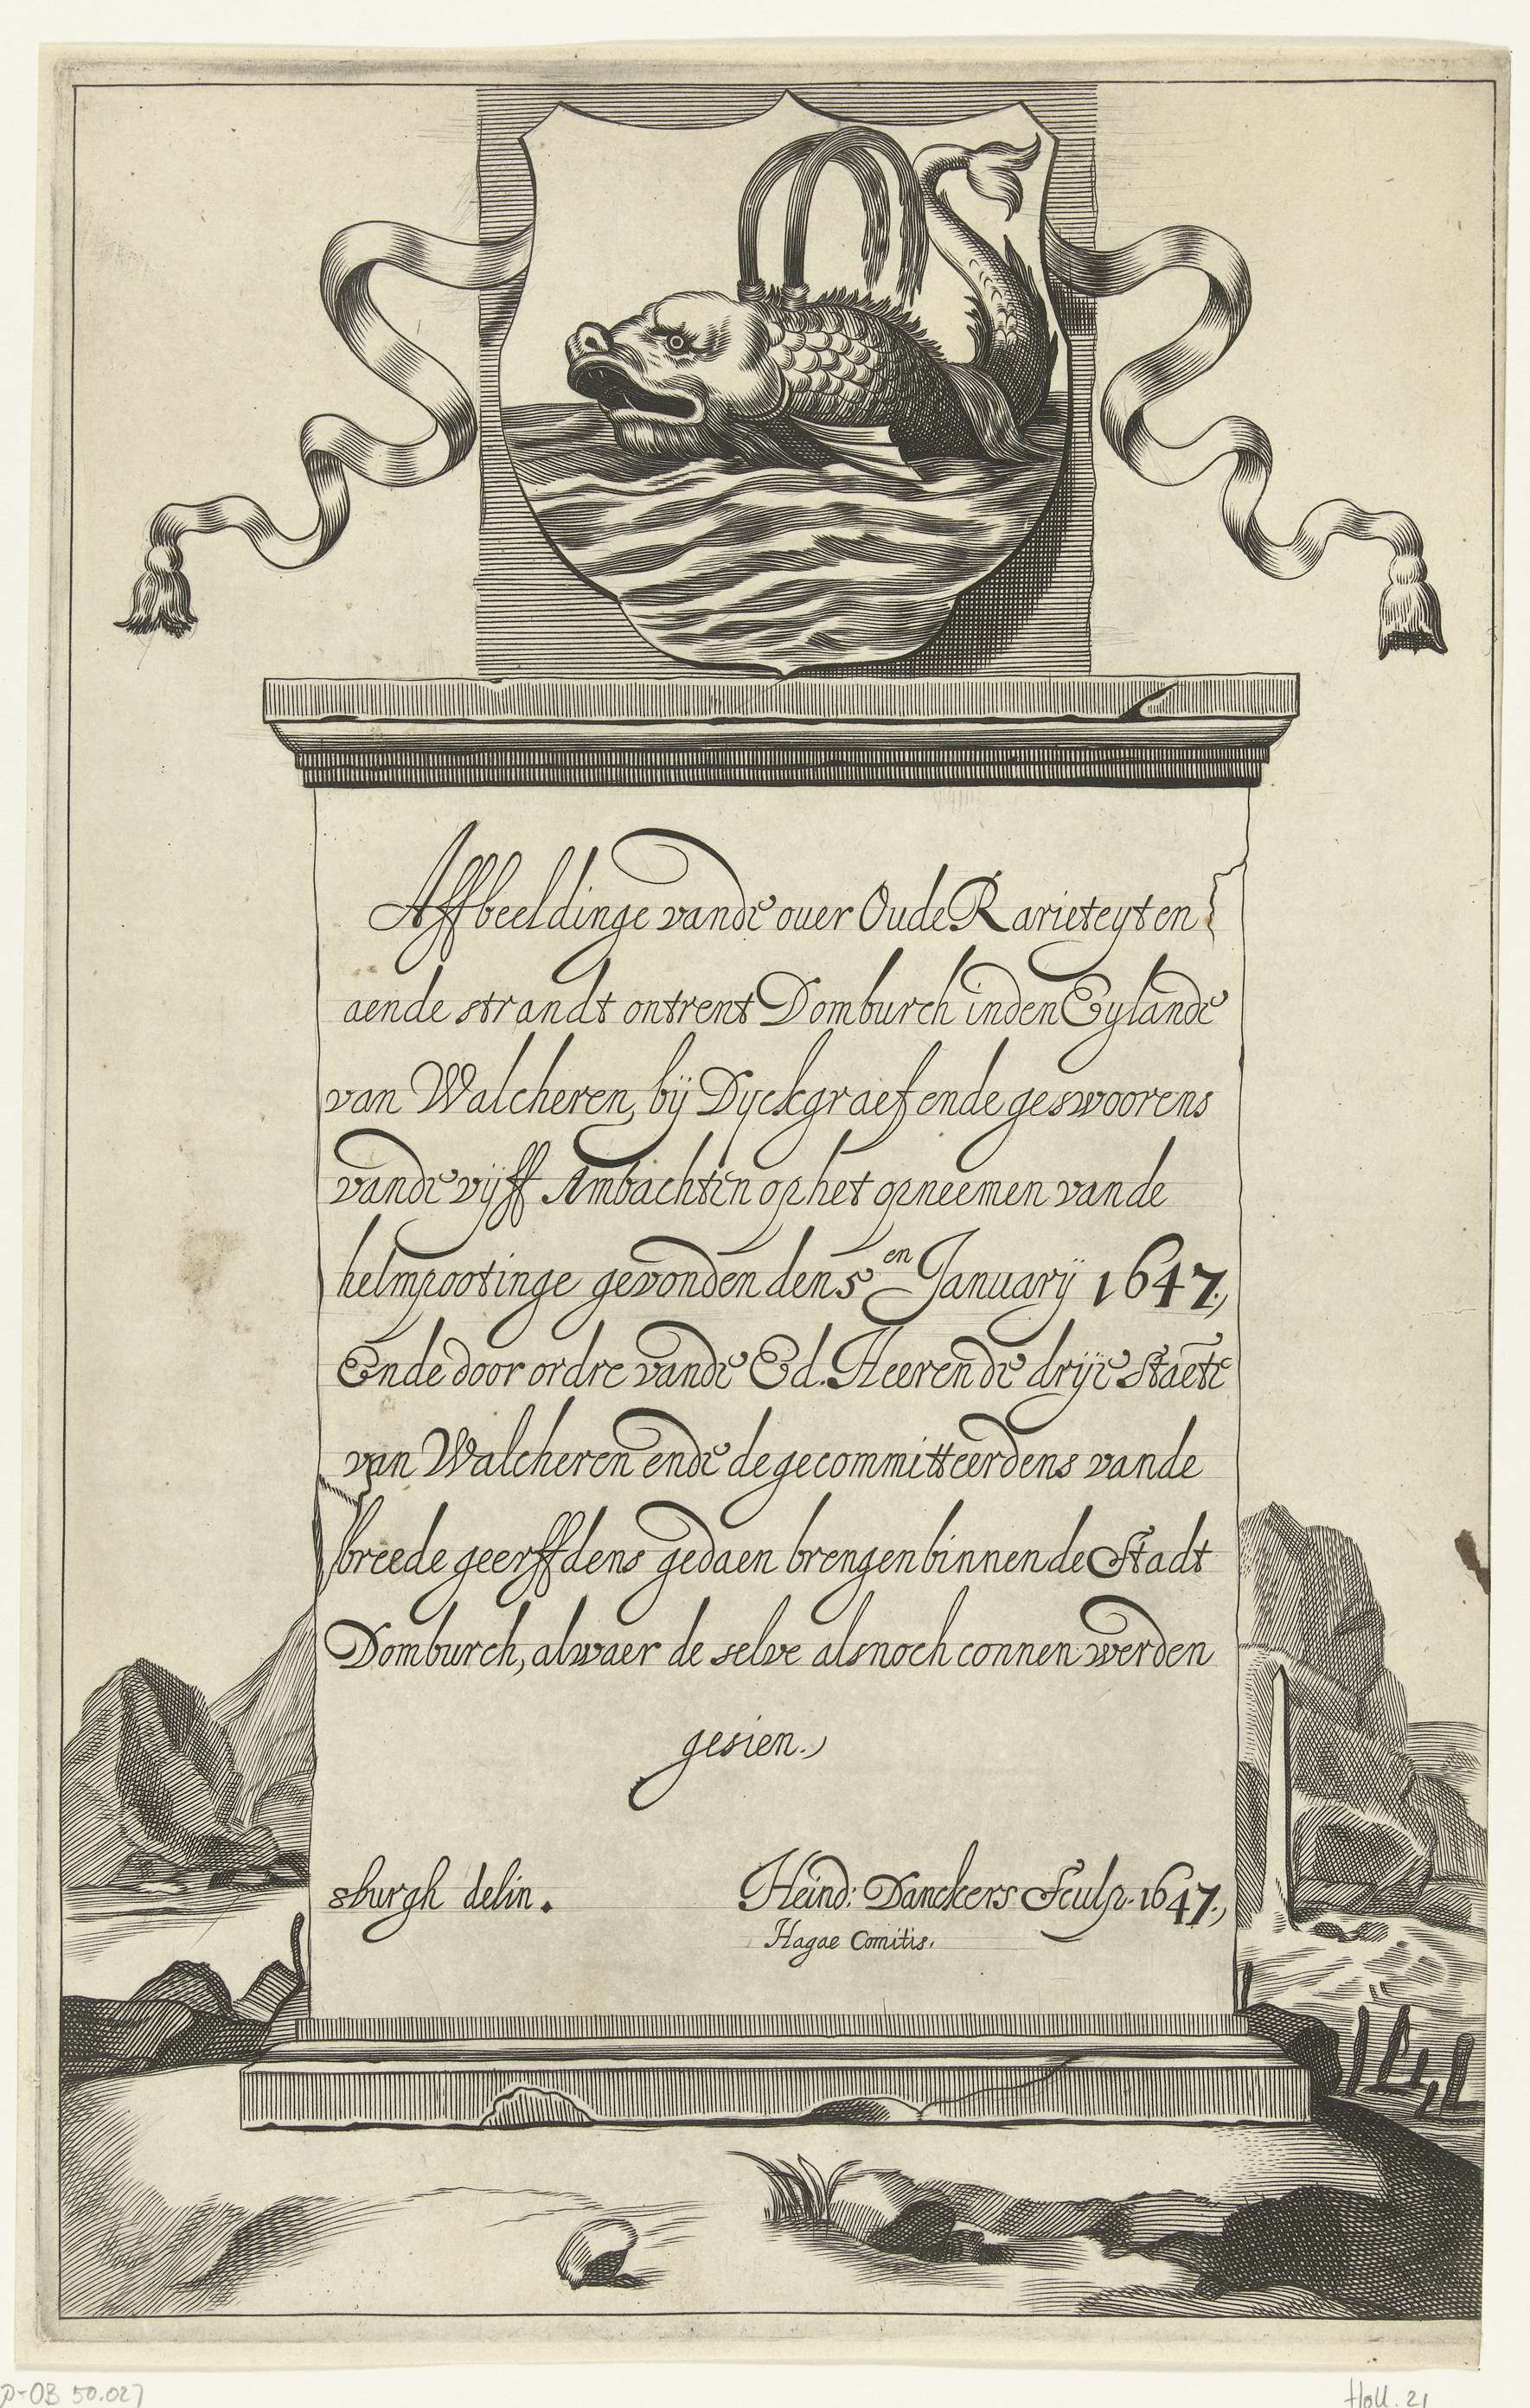 Affbeeldinge vande over Oude Rarieteyten
aende strandt ontrent Domburch inden Eylande
van Walcheren, bij Dyckgraef ende geswoorens
vande vijff Ambachten op het opneemen vande
helmpootinge gevonden den 5en January 1647.,
Ende door ordre vande Ed. Heeren de drije Staete
van Walcheren ende de gecommitteerdens vande
breede geerffdens gedaen brengen binnen de Stadt
Domburch, alwaer de selve alsnoch connen werden
gesien.,
sburgh delin.
Heind: Danckers Sculp. 1647.,
Hagae Comitis.
P-OB 50.027
Holl. 21